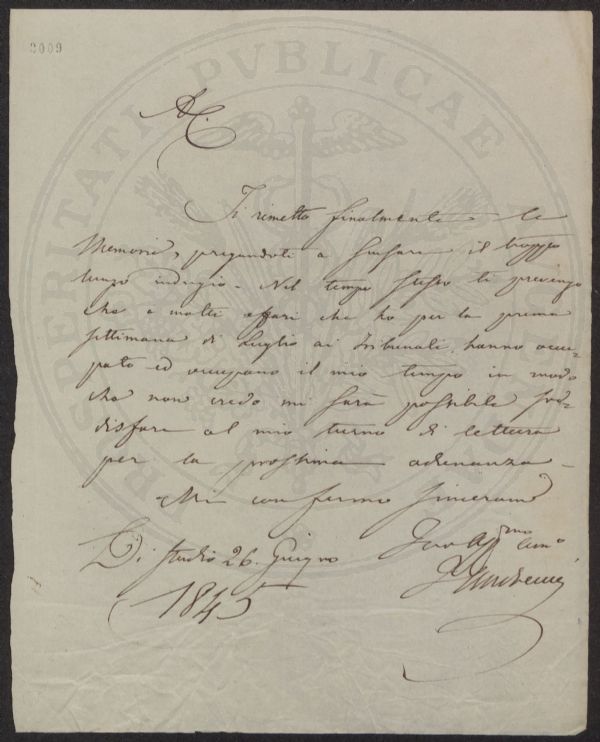 2009
PROSPERITATI PVBLICAE
A. C.
Ti rimetto finalmente le
Memorie, pregandoti a scusare il troppo
lungo indugio. Nel tempo stesso ti prevengo
che i molti affari che ho per la prima
settimana di Luglio ai Tribunali, hanno occu-
pato ed occupano il mio tempo in modo
che non credo mi sarà possibile sod-
disfare al mio turno di lettura
per la prossima adunanza.
Mi confermo sinceram
Di Studio 26. Giugno
1845